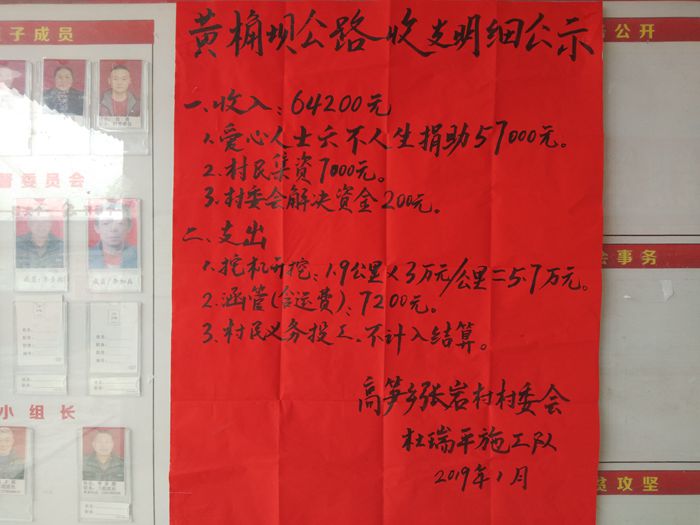 黄桷坝公路收支明细公示
一、收入：64200元
1.爱心人士六不人生捐助57000元。
2.村民集资7000元。
3.村委会解决资金200元。
二、支出
1.挖机开挖：1.9公里×3万元/公里=5.7万元。
2.涵管(含运费)：7200元。
3.村民义务投工、不计入结算。
高笋乡张岩村村委会
杜瑞平施工队
2019年1月
子成员
督委员会
小组长
公开
会事务
贫攻坚